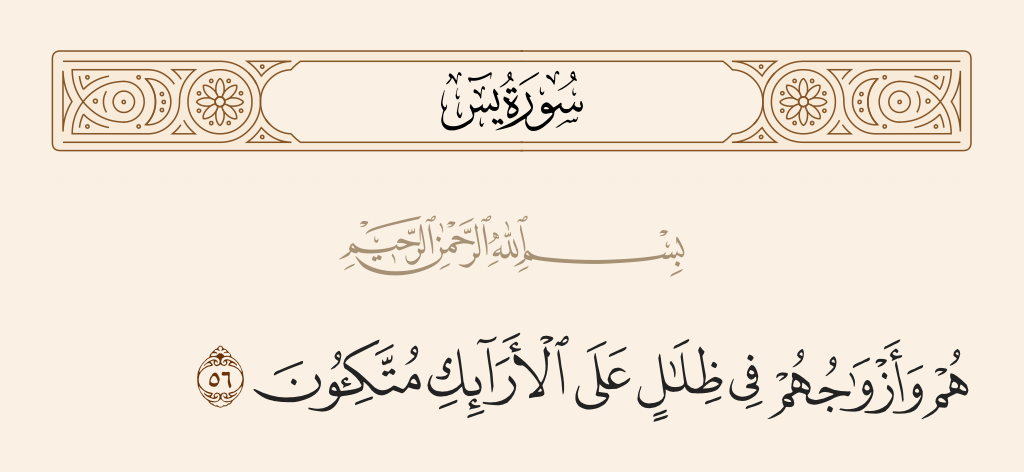 سُورَةُ يسٓ
بِسْمِ ٱللَّهِ ٱلرَّحْمَٰنِ ٱلرَّحِيمِ
هُمْ وَأَزْوَٰجُهُمْ فِى ظِلَٰلٍ عَلَى ٱلْأَرَآئِكِ مُتَّكِـُٔونَ ٥٦